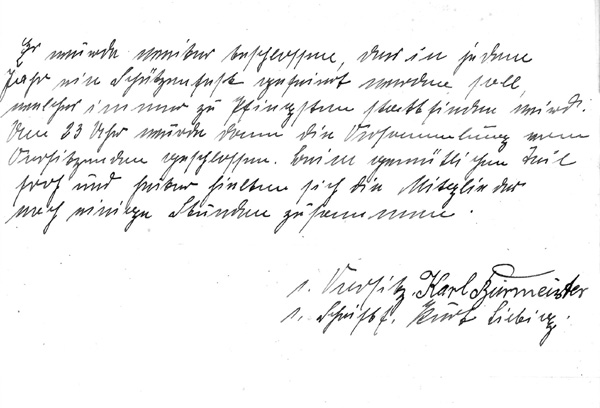 Es wurde weiter beschlossen, das in jedem
Jahr ein Schützenfest gefeiert werden soll,
welches immer zu Pfingsten stattfinden wird.
Um 23 Uhr wurde dann die Versammlung vom
Vorsitzenden geschlossen. Beim gemütlichen Teil
froh und heiter hielten sich die Mitglieder
noch einige Stunden zusammen.
1. Vorsitz. Karl Burmeister
1. Schriftf. Kurt Liebing.